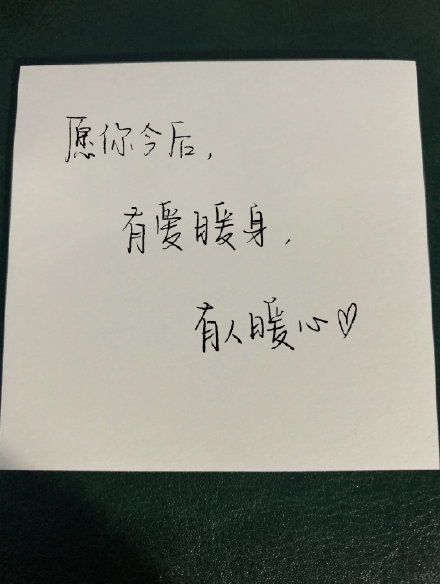 愿你今后,
有爱暖身,
有人暖心♡